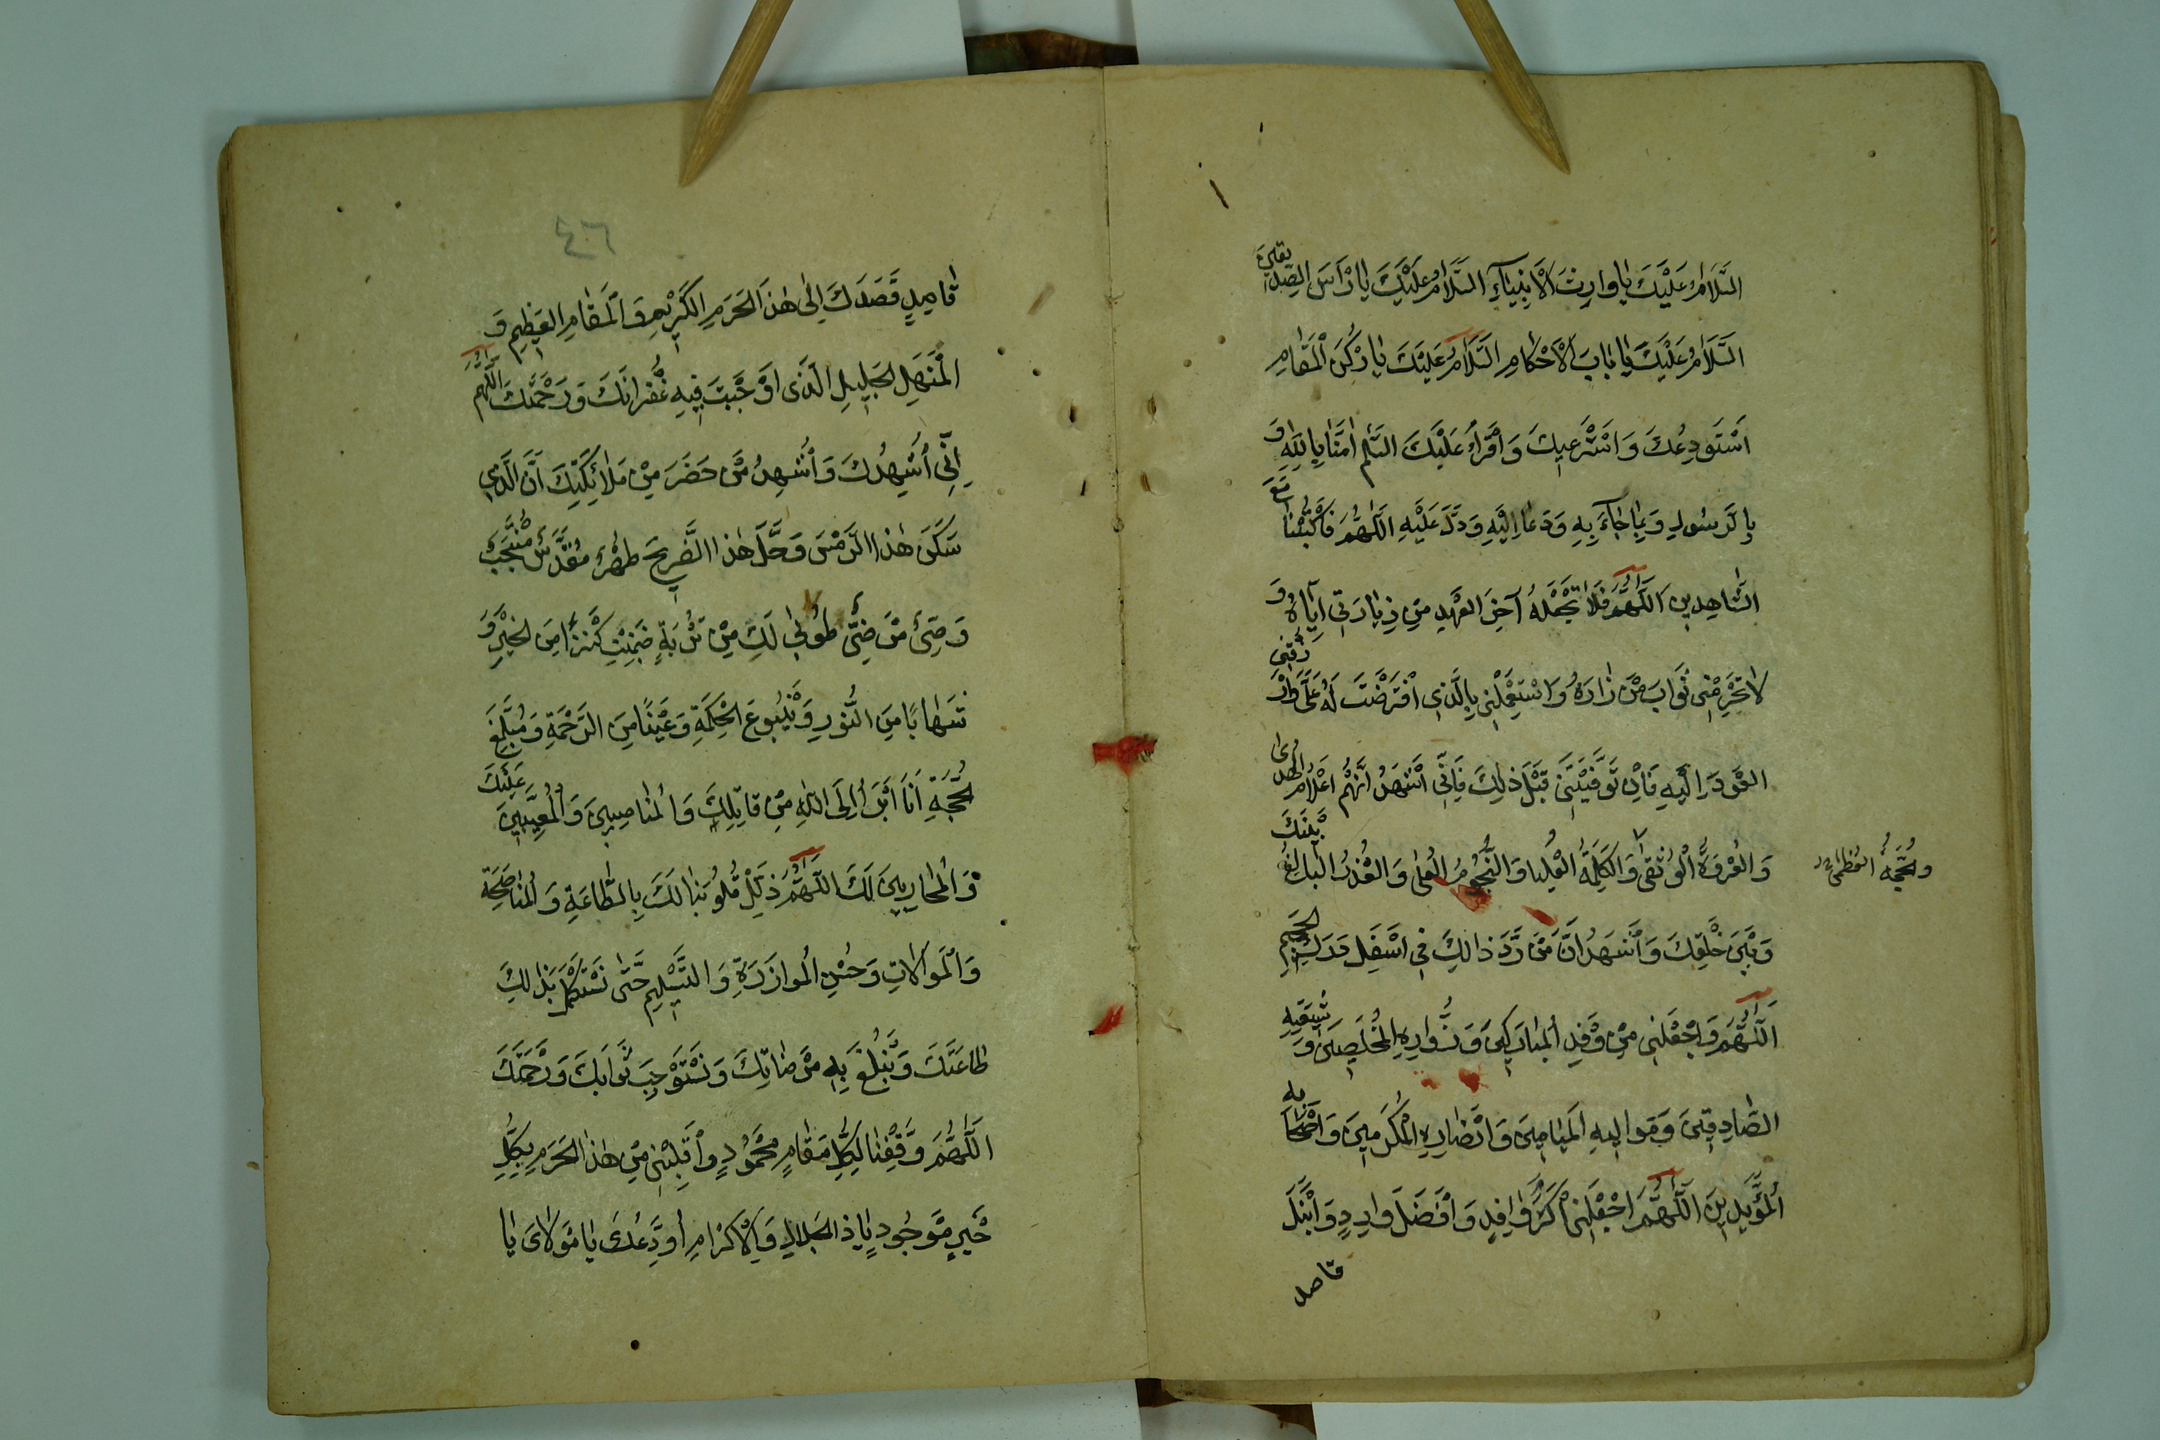 اَلسَّلَامُ عَلَيْكَ يَا وَارِثَ الْاَنْبِيَآءِ السَّلَامُ عَلَيْكَ يَا رَاْسَ الصِّدِّيقِينَ
اَلسَّلَامُ عَلَيْكَ يَا بَابَ الْاَحْكَامِ السَّلَامُ عَلَيْكَ يَا رُكْنَ الْمَقَامِ
اَسْتَوْدِعُكَ وَاَسْتَرْعِيكَ وَاَقْرَاُ عَلَيْكَ السَّلٰمَ اٰمَنَّا بِاللّٰهِ وَ
بِالرَّسُولِ وَبِمَا جَآءَ بِهِ وَدَعَا اِلَيْهِ وَدَلَّ عَلَيْهِ اَللّٰهُمَّ فَاكْتُبْنَا مَعَ
الشَّاهِدِينَ اَللّٰهُمَّ فَلَا تَجْعَلْهُ آخِرَ الْعَهْدِ مِنْ زِيَارَتِي اِيَّاهُ وَ
لَا تَحْرِمْنِي ثَوَابَ مَنْ زَارَهُ وَاسْتَعْمِلْنِي بِالَّذِي افْتَرَضْتَ لَهُ عَلَيَّ وَارْزُقْنِي
الْعَوْدَ اِلَيْهِ فَاِنْ تَوَفَّيْتَنِي قَبْلَ ذٰلِكَ فَاِنِّي اَشْهَدُ اَنَّهُمْ اَعْلَامُ الْهُدىٰ
وَالْعُرْوَةُ الْوُثْقىٰ وَالْكَلِمَةُ الْعُلْيَا وَالنُّجُومُ الْعُلىٰ وَالْعُذْرُ الْبَالِغُ بَيْنَكَ
وَالْحُجَّةُ الْعُظْمىٰ
وَبَيْنَ خَلْقِكَ وَاَشْهَدُ اَنَّ مَنْ رَدَّ ذَالِكَ فِي اَسْفَلِ دَرَكِ الْجَحِيمِ
اَللّٰهُمَّ وَاجْعَلْنِي مِنْ وَفْدِهِ الْمُبَارَكِينَ وَزُوَّارِهِ الْمُخْلَصِينَ وَ شِيعَتِهِ
الصَّادِقِينَ وَمَوَالِيهِ الْمَيَامِينَ وَاَنْصَارِهِ الْمُكَرَّمِينَ وَاَصْحَابِهِ
الْمُؤَيَّدِينَ اَللّٰهُمَّ اجْعَلْنِي اَكْرَمَ وَافِدٍ وَاَفْضَلَ وَارِدٍ وَاَنْبَلَ
قاصد
٤٠٦
قَاصِدٍ قَصَدَكَ اِلىٰ هٰذَا الْحَرَمِ الْكَرِيمِ وَالْمَقَامِ الْعَظِيمِ وَ
الْمَنْهَلِ الْجَلِيلِ الَّذِي اَوْجَبْتَ فِيهِ غُفْرَانَكَ وَرَحْمَتَكَ اَللّٰهُمَّ
اِنِّي اُشْهِدُكَ وَاُشْهِدُ مَنْ حَضَرَ مِنْ مَلَائِكَتِكَ اَنَّ الَّذِي
سَكَنَ هٰذَا الرَّمْسَ وَحَلَّ هٰذَا الضَّرِيحَ طُهْرٌ مُقَدَّسٌ مُنْتَجَبٌ
وَصِيٌّ مَرْضِيٌّ طُوبىٰ لَكِ مِنْ تُرْبَةٍ ضَمِنَتْ كَنْزًا مِنَ الْخَيْرِ وَ
شِهَابًا مِنَ النُّورِ وَيَنْبُوعَ الْحِكْمَةِ وَعَيْنًا مِنَ الرَّحْمَةِ وَمُبَلِّغَ
الْحُجَّةِ اَنَا اَبْرَاُ اِلَى اللّٰهِ مِنْ قَاتِلِكَ وَالْمُنَاصِبِينَ وَالْمُعِينِينَ عَلَيْكَ
وَالْمُحَارِبِينَ لَكَ اَللّٰهُمَّ ذَلِّلْ قُلُوبَنَا لَكَ بِالطَّاعَةِ وَالْمُنَاصَحَةِ
وَالْمَوَالَاتِ وَحُسْنِ الْمُوَازَرَةِ وَالتَّسْلِيمِ حَتّىٰ نَسْتَكْمِلَ بِذٰلِكَ
طَاعَتَكَ وَنَبْلُغَ بِهِ مَرْضَاتِكَ وَنَسْتَوْجِبَ ثَوَابَكَ وَرَحْمَتَكَ
اَللّٰهُمَّ وَفِّقْنَا لِكُلِّ مَقَامٍ مَحْمُودٍ وَاَقْلِبْنِي مِنْ هٰذَا الْحَرَمِ بِكُلِّ
خَيْرٍ مَوْجُودٍ يَا ذَا الْجَلَالِ وَالْاِكْرَامِ اُوَدِّعُكَ يَا مَوْلَايَ يَا